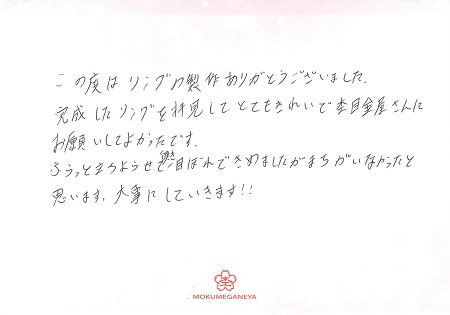 この度はリングの製作ありがとうございました。
完成したリングを拝見してとてもきれいで杢目金屋さんに
お願いしてよかったです。
ふらっと立ちよらせて頂き一目ぼれできめましたがまちがいなかったと
思います。大事にしていきます!!
MOKUMEGANEYA